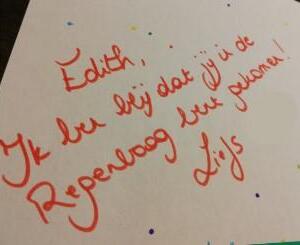 Edith,
Ik ben blij dat jij in de
Regenboog bent gekomen!
Liefs